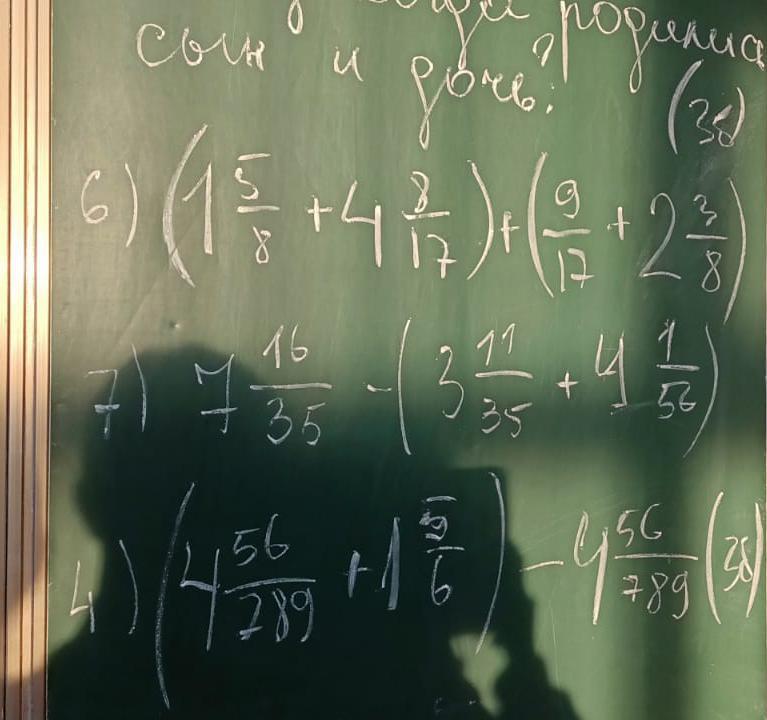 родился
сын и дочь?
(3б)
6) (1 5/8 + 4 8/17) + (9/17 + 2 3/8)
7) 7 16/35 - (3 11/35 + 4 1/56)
4) (4 56/789 + 1 5/6) - 4 56/789 (3б)